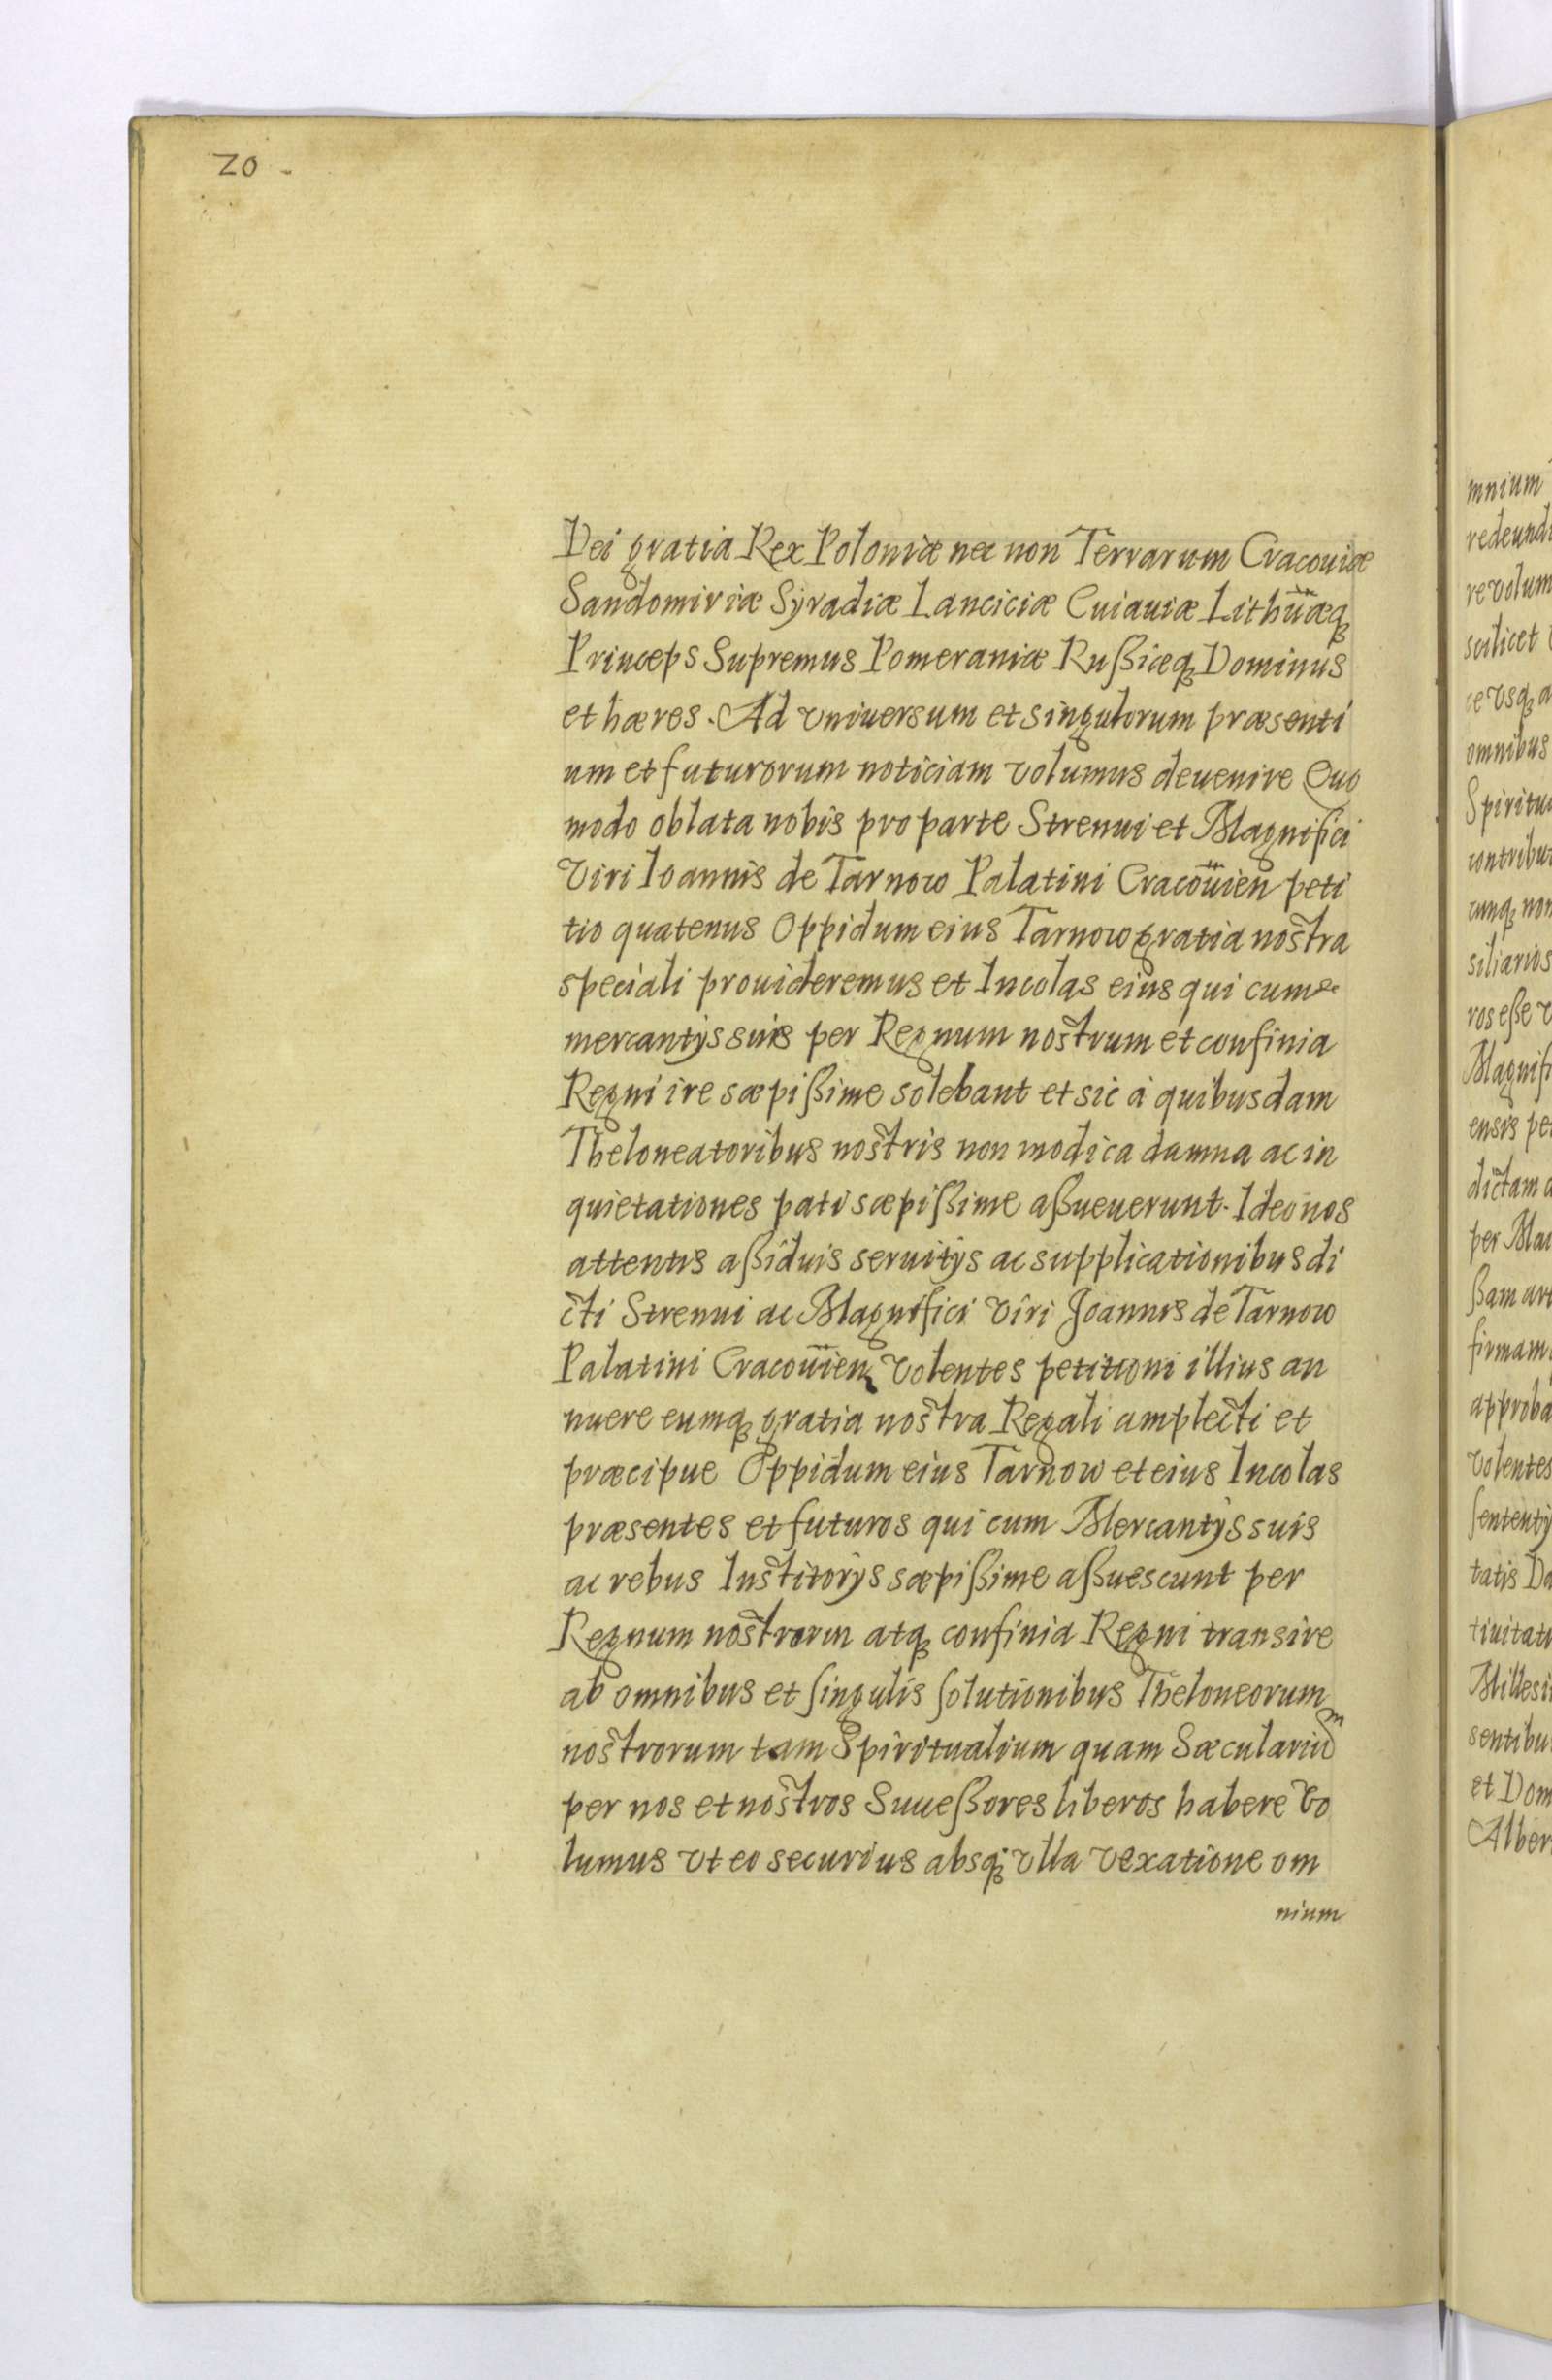 20
Dei gratia Rex Poloniæ nec non Terrarum Cracouiæ
Sandomiriæ Syradiæ Lanciciæ Cuiauiæ Lithuæq
Princeps Supremus Pomeraniæ Rußiæq Dominus
et hæres. Ad vniuersum et singulorum præsenti
um et futurorum noticiam volumus deuenire Quo
modo oblata nobis pro parte Strenui et Magnifici
Viri Ioannis de Tarnow Palatini Cracouien peti
tio quatenus Oppidum eius Tarnow gratia nostra
speciali prouideremus et Incolas eius qui cum
mercantÿs suis per Regnum nostrum et confinia
Regni ire sæpißime solebant et sic á quibusdam
Theloneatoribus nostris non modica damna ac in
quietationes pati sæpißime aßueuerunt. Ideo nos
attentis aßiduis seruitÿs ac supplicationibus di
cti Strenui ac Magnifici Viri Joannis de Tarnow
Palatini Cracouien volentes petitioni illius an
nuere eumq gratia nostra Regali amplecti et
præcipue Oppidum eius Tarnow et eius Incolas
præsentes et futuros qui cum Mercantÿs suis
ac rebus Institorÿs sæpißime aßuescunt per
Regnum nostrorm atq confinia Regni transire
ab omnibus et singulis solutionibus Theloneorum
nostrorum tam Spiritualium quam Sæculariũm
per nos et nostros Succeßores liberos habere vo
lumus vt eo securius absq vlla vexatione om
nium
mnium
redeundi
re volum
scilicet
ce vsq a
omnibus
Spiritu
contribu
cunq non
siliarios
ros eße v
Magnifi
ensis pe
dictam a
per Ma
ßam
firmam
approba
volentes
sententÿ
tatis Da
tiuitat
Millesi
sentibu
et Dom
Alber